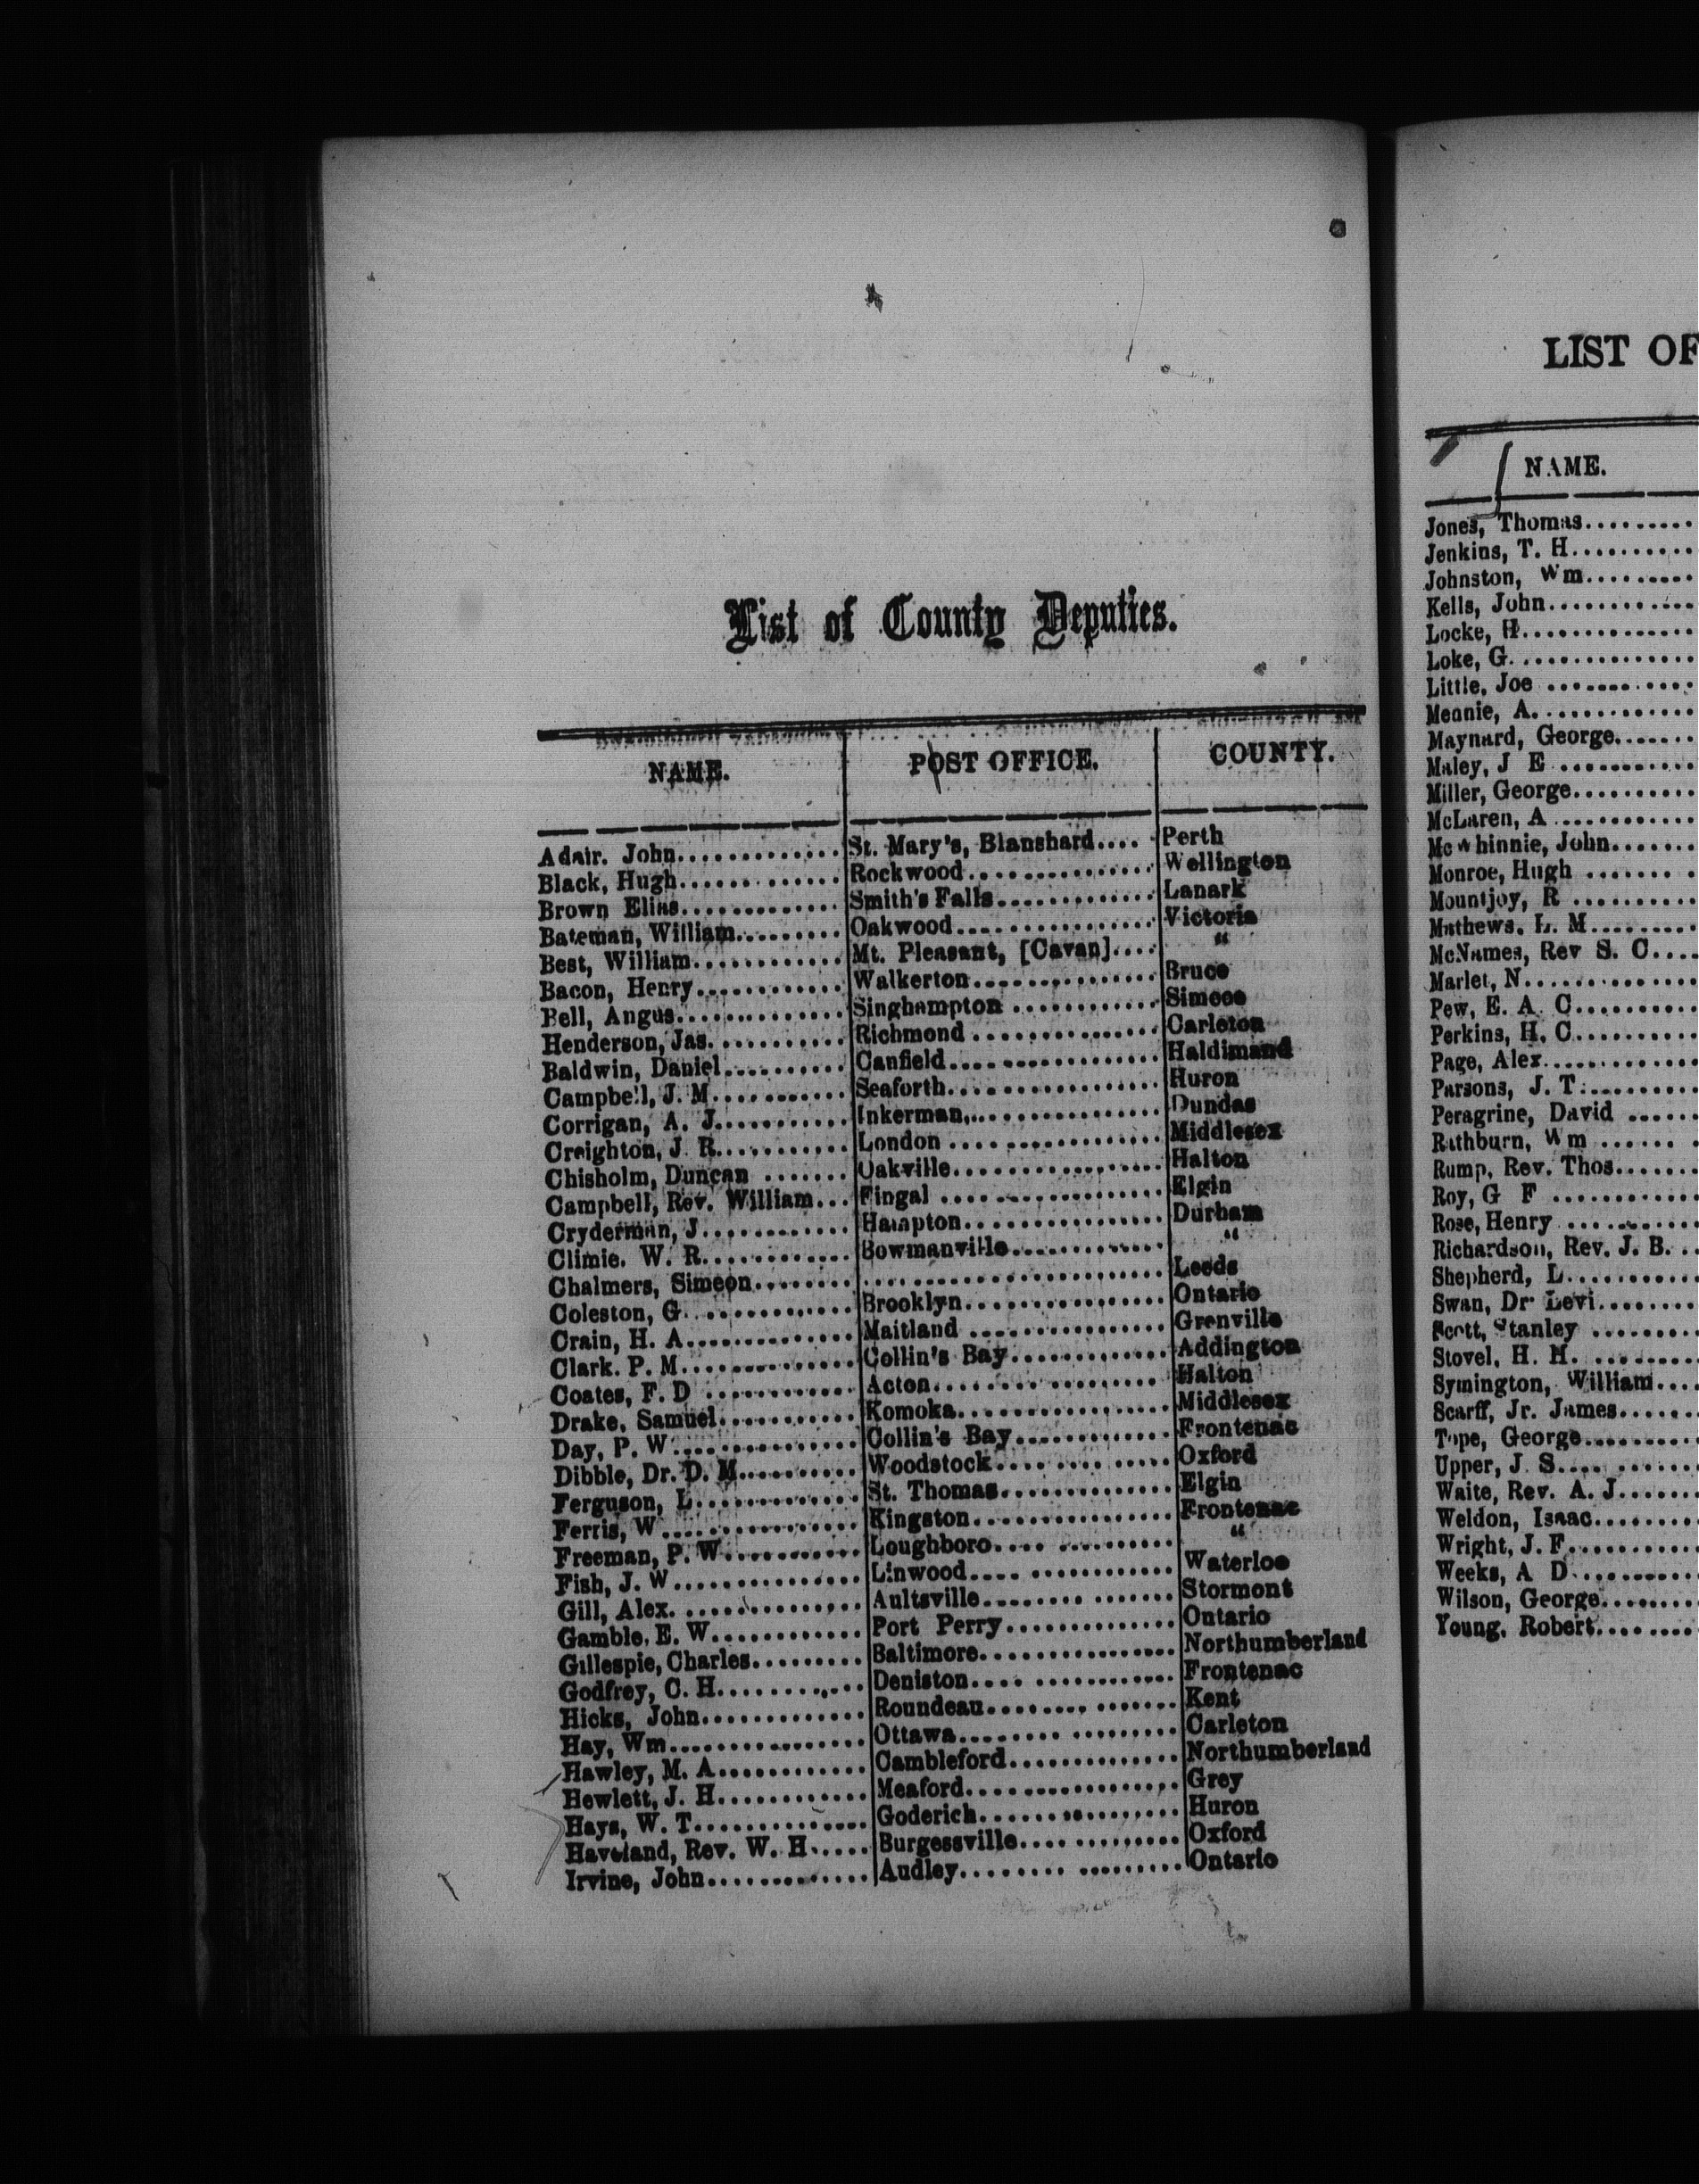 List of County Deputies.
NAME. POST OFFICE. COUNTY.
Adair. John............. St. Mary's, Blanshard.... Perth
Black, Hugh............. Rockwood............... Wellington
Brown Elias............. Smith's Falls............. Lanark
Bateman, William......... Oakwood................ Victoria
Best, William............ Mt. Pleasant, [Cavan].... “
Bacon, Henry............ Walkerton............... Bruce
Bell, Angus.............. Singhampton ............ Simcoe
Henderson, Jas........... Richmond ............... Carleton
Baldwin, Daniel.......... Canfield................. Haldimand
Campbell, J. M........... Seaforth................. Huron
Corrigan, A. J........... Inkerman,................ Dundas
Creighton, J. R........... London ................. Middlesex
Chisholm, Duncan ....... Oakville................. Halton
Campbell, Rev. William... Fingal .................. Elgin
Cryderman, J............ Hampton................ Durham
Climie. W. R............ Bowmanville............ “
Chalmers, Simeon........ ........................ Leeds
Coleston, G.............. Brooklyn................ Ontario
Crain, H. A.............. Maitland ................ Grenville
Clark. P. M.............. Collin's Bay............. Addington
Coates, F. D ............ Acton.................. Halton
Drake, Samuel........... Komoka................. Middlesex
Day, P. W............... Collin's Bay............. Frontenac
Dibble, Dr. D. M.......... Woodstock.............. Oxford
Ferguson, L............. St. Thomas.............. Elgin
Ferris, W................ Kingston................ Frontenac
Freeman, P. W........... Loughboro.............. “
Fish, J. W............... Linwood................ Waterloo
Gill, Alex. .............. Aultsville............... Stormont
Gamble, E. W............ Port Perry.............. Ontario
Gillespie, Charles......... Baltimore................ Northumberland
Godfrey, C. H............ Deniston................ Frontenac
Hicks, John............. Roundeau............... Kent
Hay, Wm................ Ottawa................. Carleton
Hawley, M. A............ Cambleford.............. Northumberland
Hewlett, J. H............ Meaford................. Grey
Hays, W. T.............. Goderich................ Huron
Haveland, Rev. W. H..... Burgessville............. Oxford
Irvine, John............. Audley................. Ontario
LIST OF
NAME.
Jones, Thomas.........
Jenkins, T. H..........
Johnston, Wm.........
Kells, John............
Locke, H..............
Loke, G. ..............
Little, Joe ............
Mennie, A. ............
Maynard, George.......
Maley, J E ...........
Miller, George..........
McLaren, A ............
McWhinnie, John.......
Monroe, Hugh ........
Mountjoy, R ..........
Mathews. L. M.........
McNames, Rev S. C....
Marlet, N..............
Pew, E. A. C..........
Perkins, H. C..........
Page, Alex............
Parsons, J. T..........
Peragrine, David ......
Rathburn, Wm .......
Rump, Rev. Thos.......
Roy, G F ............
Rose, Henry ..........
Richardson, Rev. J. B. ..
Shepherd, L...........
Swan, Dr Levi........
Scott, Stanley .........
Stovel, H. H. .........
Symington, William....
Scarff, Jr. James......
Tope, George..........
Upper, J. S............
Waite, Rev. A. J.......
Weldon, Isaac.........
Wright, J. F...........
Weeks, A D...........
Wilson, George.........
Young, Robert.........